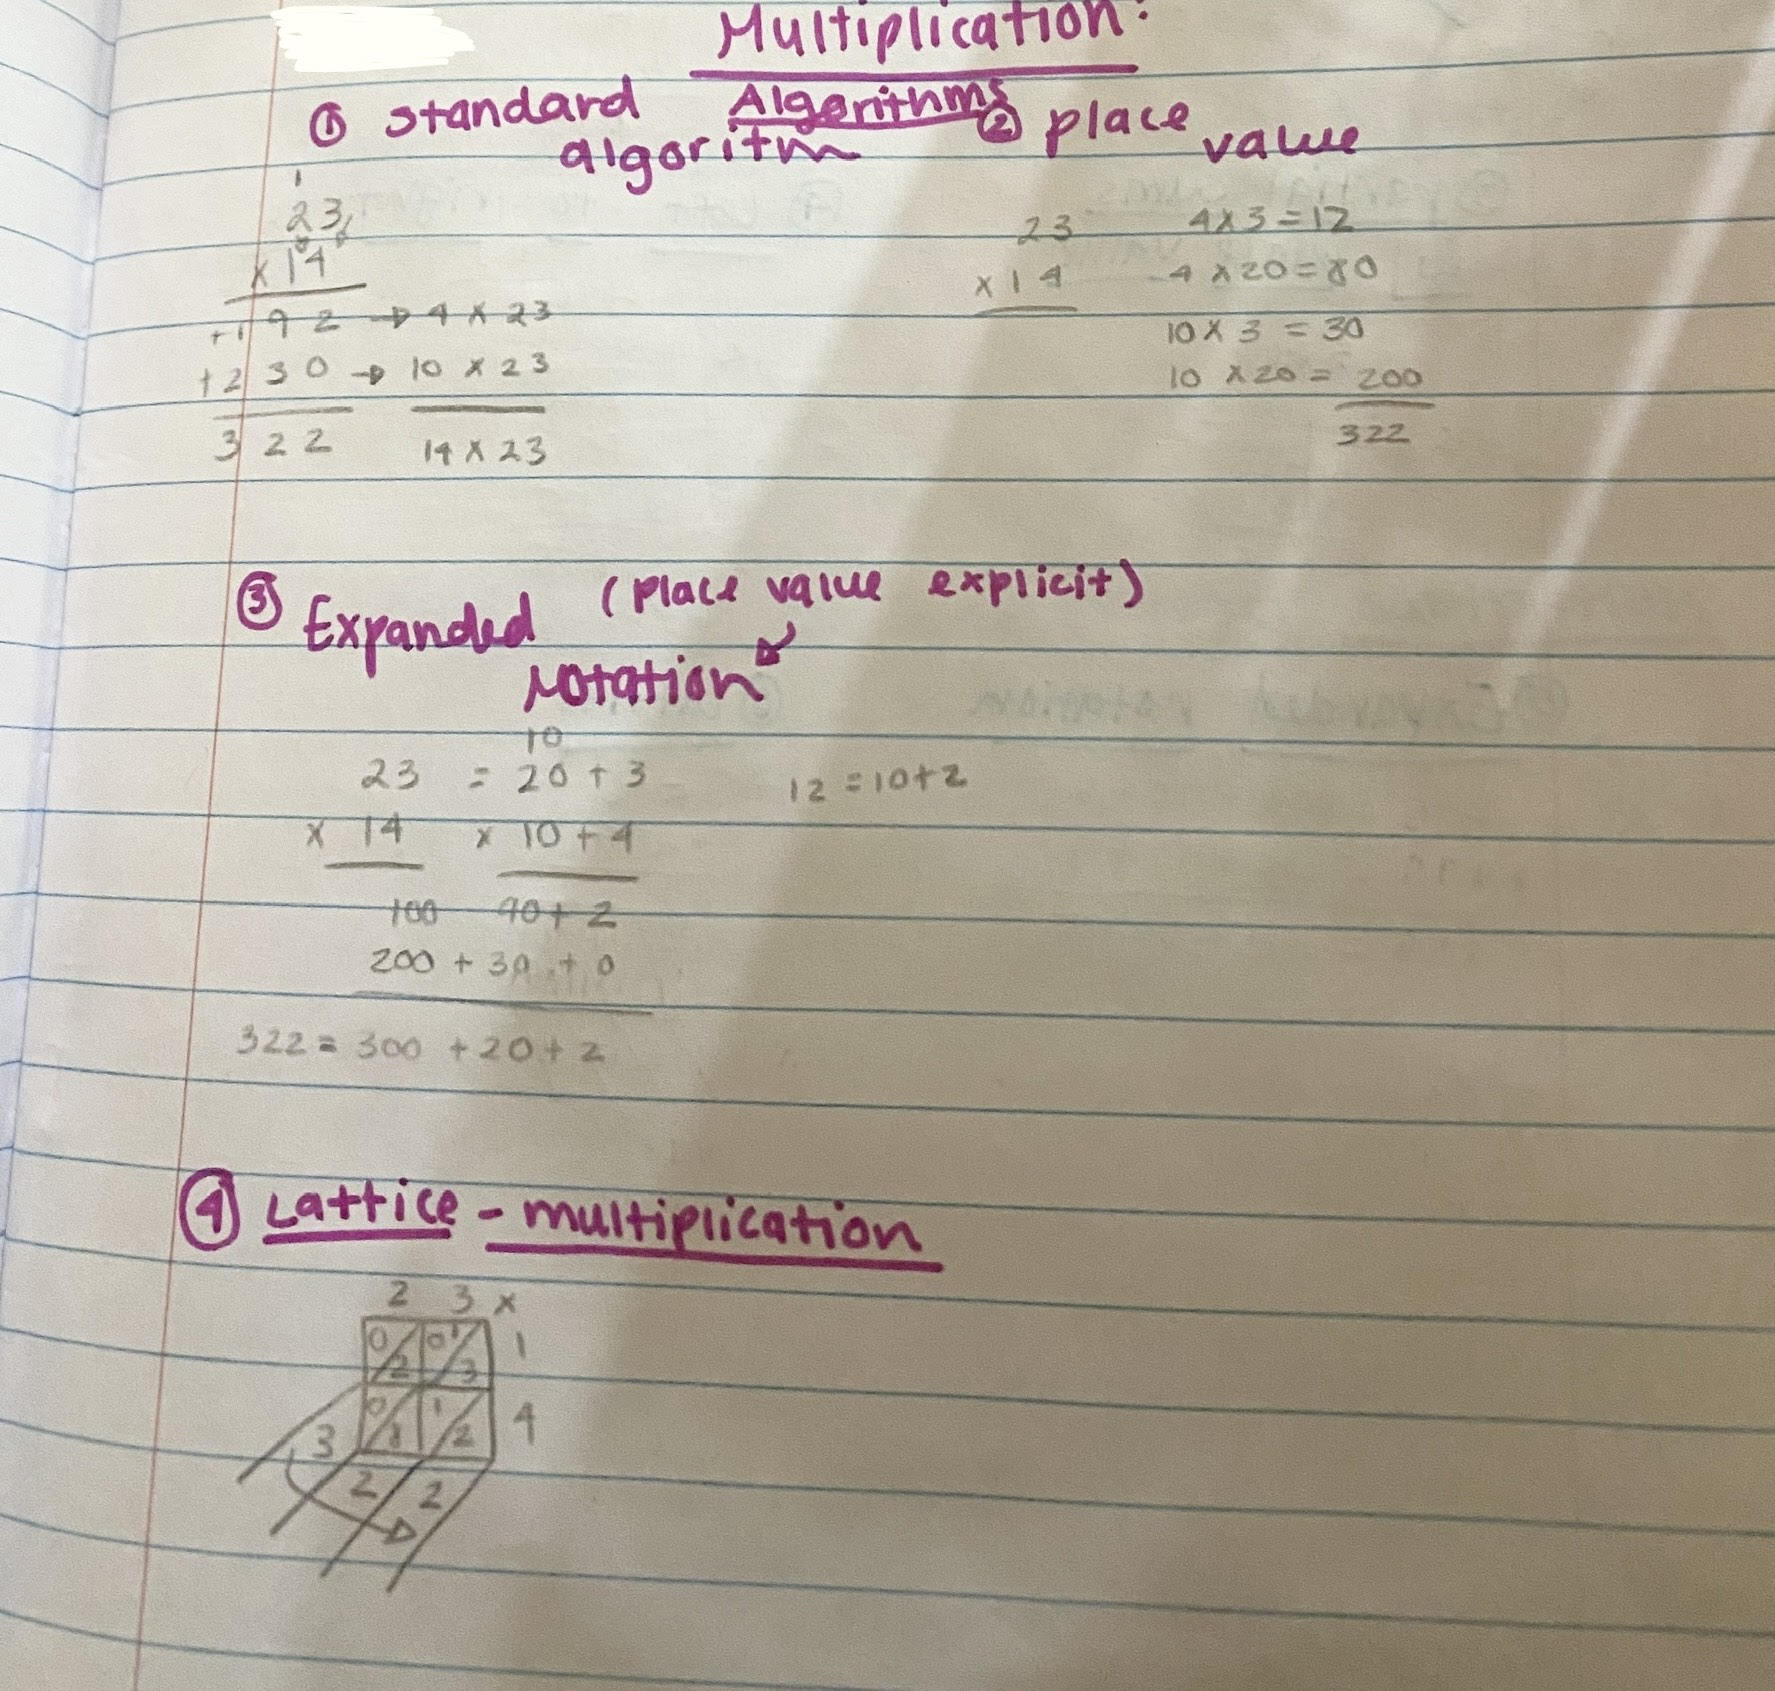 Multiplication:
Algorithms
① standard
algoritm
1
23
x 14
+1 92 → 4 x 23
+230 → 10 x 23
322 14 x 23
② place value
23
x 14
4x3=12
4 x20=80
10x 3 = 30
10 x20= 200
322
③ Expanded (Place value explicit)
Notation
10
23 = 20 + 3 12 = 10+2
x 14 x 10 + 4
100 90+ 2
200 + 30 + 0
322 = 300 + 20 + 2
④ Lattice - multiplication
2 3 x
0 2 0 1 3 1
0 8 1 2 4
3
2 2